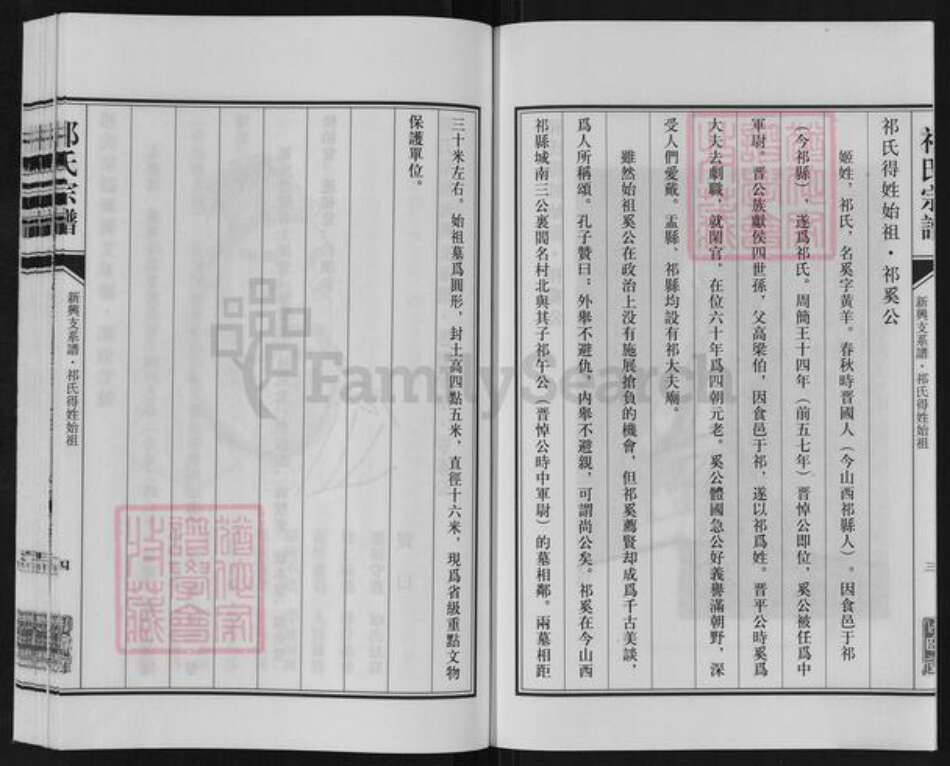 祁氏宗譜
新興支系譜·祁氏得姓始祖
三
祁氏得姓始祖·祁奚公
姬姓，祁氏，名奚字黃羊。春秋時晉國人（今山西祁縣人）。因食邑于祁
（今祁縣），遂爲祁氏。周簡王十四年（前五七年）晉悼公即位，奚公被任爲中
軍尉。晉公族獻侯四世孫，父高梁伯，因食邑于祁，遂以祁爲姓。晉平公時奚爲
大夫去劇職，就閑官。在位六十年爲四朝元老。奚公體國急公好義譽滿朝野，深
受人們愛戴。盂縣、祁縣均設有祁大夫廟。
雖然始祖奚公在政治上没有施展搶負的機會，但祁奚薦賢却成爲千古美談，
爲人所稱頌。孔子贊曰；外舉不避仇，内舉不避親，可謂尚公矣。祁奚在今山西
祁縣城南三公裏閻名村北與其子祁午公（晋悼公時中軍尉）的墓相鄰。兩墓相距
三十米左右。始祖墓爲圓形，封土高四點五米，直徑十六米，現爲省級重點文物
保護單位。
祁氏宗譜
新興支系譜·祁氏得姓始祖
四
FamilySearch